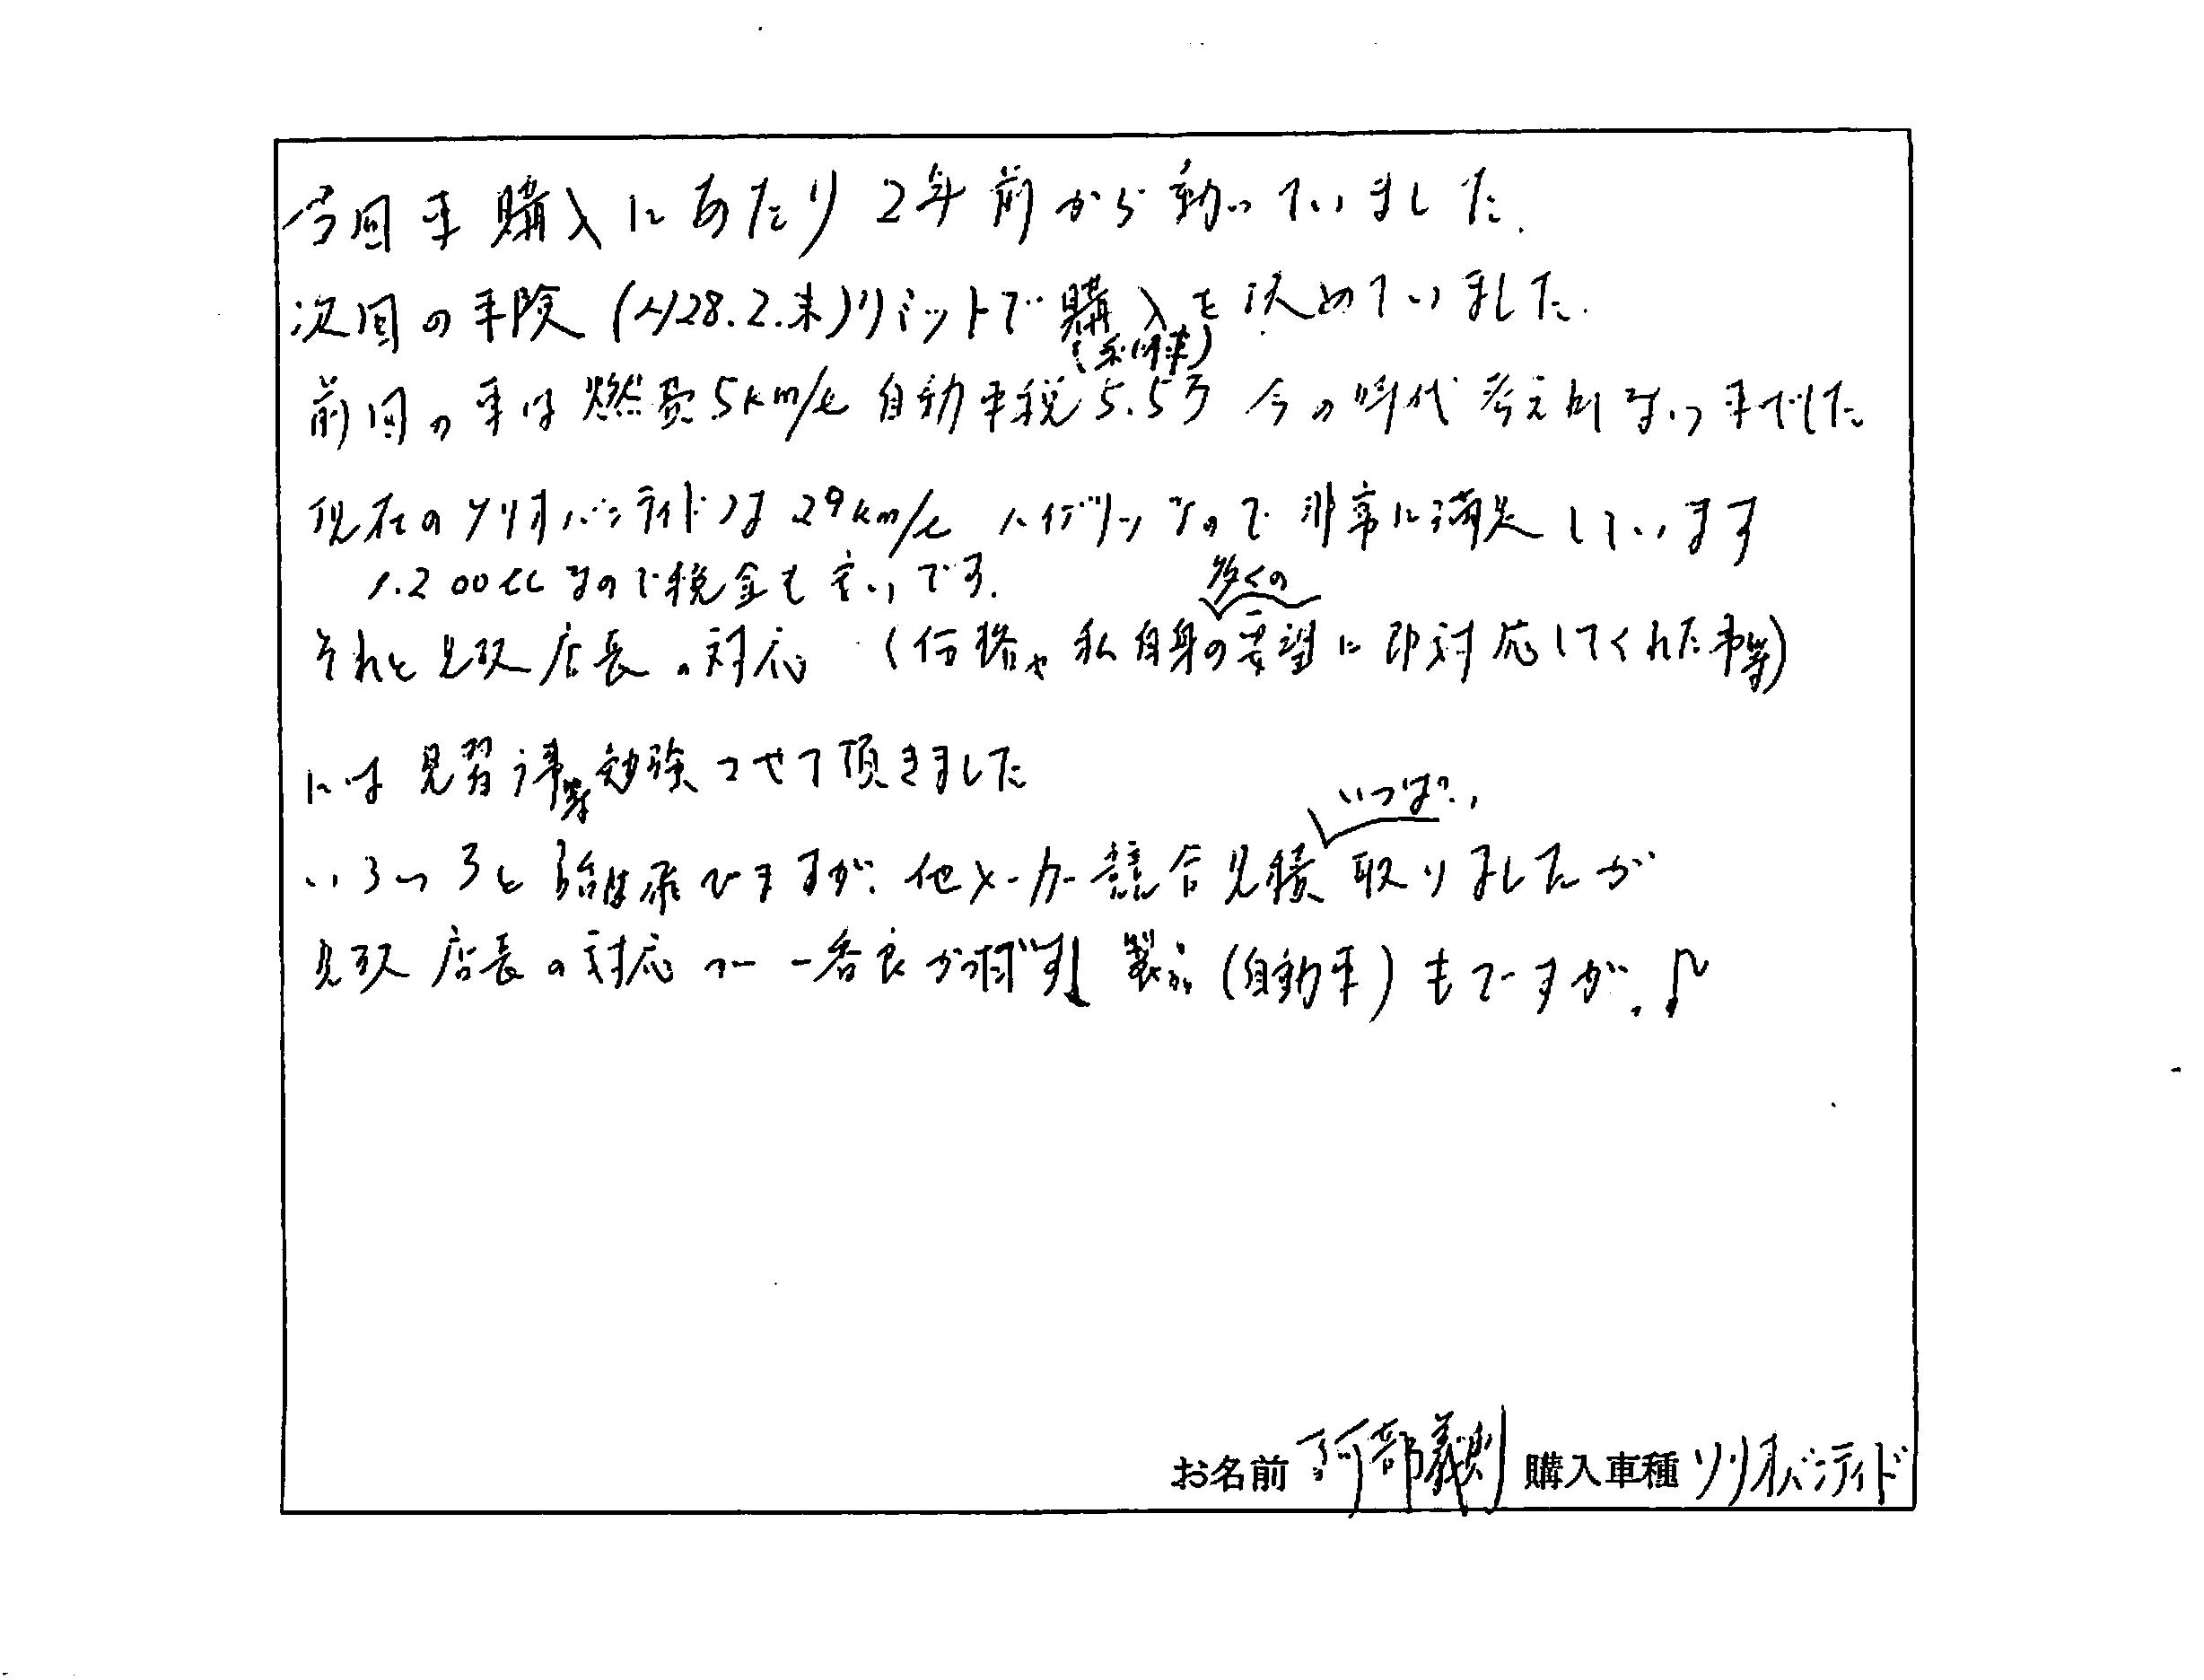 今回車購入にあたり2年前から動いていました.
次回の車検(H28.2.末)リミットで購入を決めていました.
前回の車は燃費5km/ℓ 自動車税5.5万 今の時代考えれないっ車でした
現在のソリオバンディドは29km/ℓ ハイブリッなので非常に満足しています
1.200ccなので税金も安いです.
多くの
それと 店長の対応 (価格や私自身の要望に即対応してくれた事等)
には見習う事等勉強させて頂きました
いっぱい
いろいろと ますが.他メーカー競合見積取りましたが
店長の対応が一番良かった 製品(自動車)もですが.♪
お名前 阿部義則 購入車種 ソリオバンディド